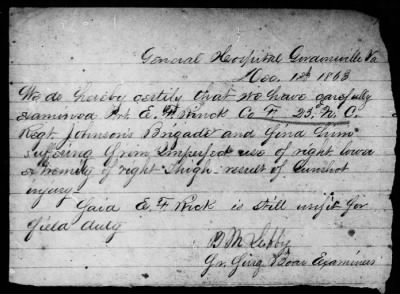 General Hospital Gordonsville Va
Dec. 12th 1863
We do hereby certify that we have carefully
examined Pvt. E. F. Co F. 23d N. C.
Regt Johnson's Brigade and find him
suffering from imperfect use of right lower
extremity of right thigh result of Gunshot
injury.
Said E. F. Wick is still unfit for
field duty
B. M.
Sr. Surg Board Examiners